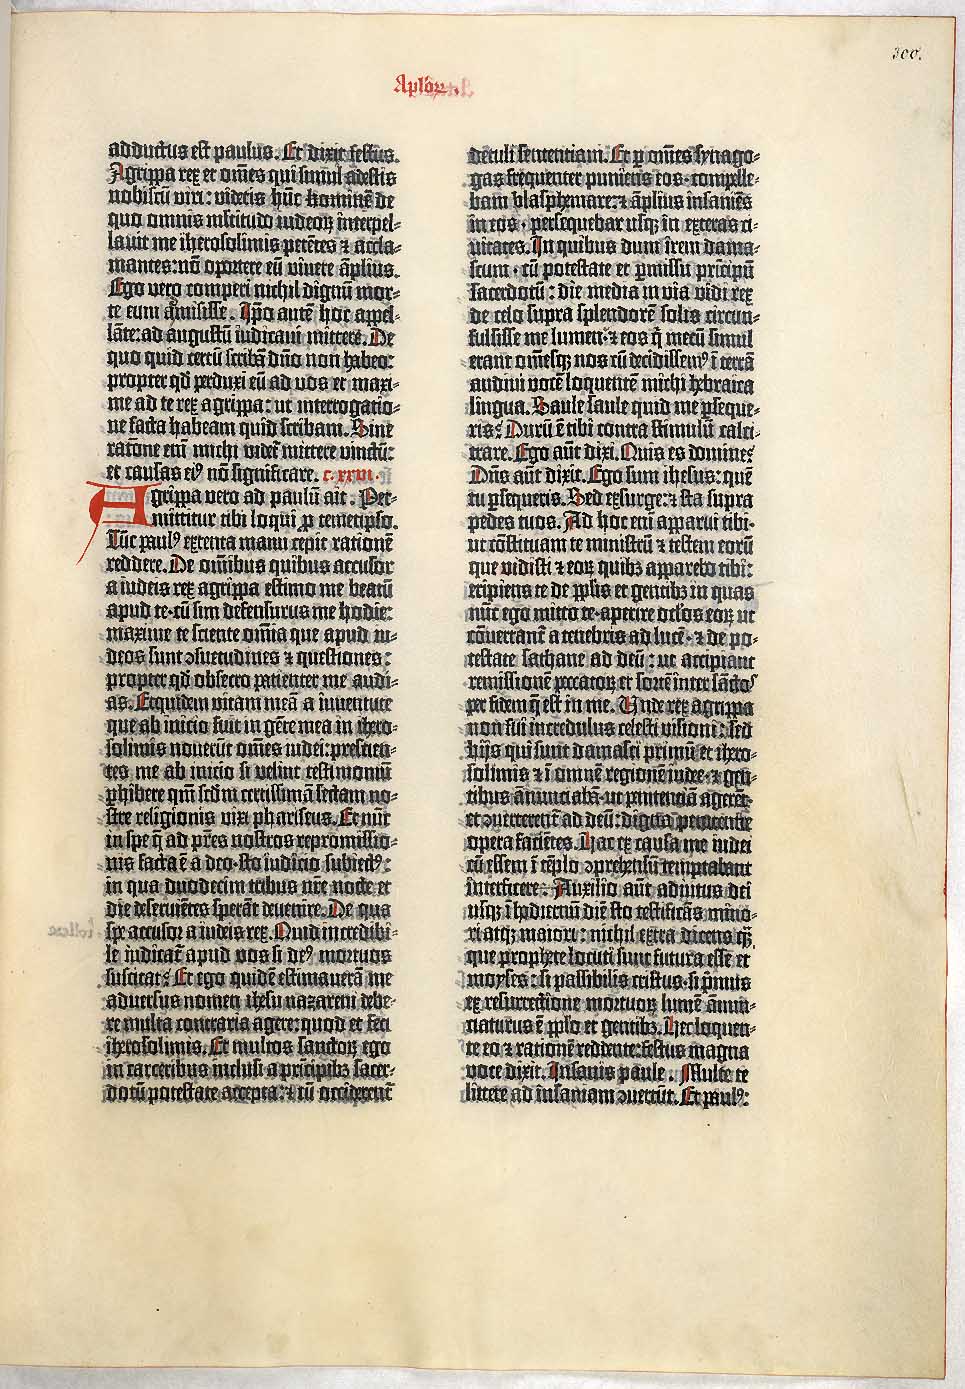 300.
Aploꝝ.
adductus est paulus. Et dixit festus.
Agrippa rex et om̄es qui simul adestis
nobiscū viri: videtis hūc hominē de
quo omnis multitudo iudeoꝝ interpel-
lauit me iherosolimis petētes ⁊ accla-
mantes: nō oportere eū vivere āplius.
Ego vero comperi nichil dignū mor-
te eum admisisse. Ip̄o autē hoc appel-
lāte: ad augustū iudicavi mittere. De
quo quid certū scribā dn̄o non habeo:
propter qd̄ perduxi eū ad vos et maxi-
me ad te rex agrippa: ut interrogatio-
ne facta habeam quid scribam. Sine
ratōne eni͞ michi videt͛ mittere vinctū:
et causas eiꝰ nō significare. c. xxvi.
Agrippa vero ad paulū ait. Per-
mittitur tibi loqui ꝓ temetipso.
Tūc paulꝰ extenta manu cepit rationē
reddere. De om̄ibus quibus accusor
a iudeis rex agrippa estimo me beatū
apud te cū sim defensurus me hodie:
maxime te sciente om̄ia que apud iu-
deos sunt ꝯsuetudines ⁊ questiones:
propter qd̄ obsecro patienter me audi-
as. Et quidem vitam meā a iuuentute
que ab inicio fuit in gēte mea in ihero-
solimis noverūt om̄es iudei: prescien-
tes me ab inicio si velint testimoniū
ꝑhibere qm̄ scd̄m certissimā sectam no-
stre religionis vixi phariseus. Et nūc
in spe q̄ ad pr̄es nostros repromissio-
nis facta ē a deo sto iudicio subiectꝰ:
in qua duodecim tribus nr̄e nocte et
die deservientes sperāt devenire. De qua
spe accusor a iudeis rex. Quid incredibi-
le iudicat͛ apud vos si deꝰ mortuos
suscitat? Et ego quidē estimaverā me
adversus nomen ihesu nazareni debe-
re multa contraria agere: quod et feci
iherosolimis. Et multos sanctoꝝ ego
in carceribus inclusi a pricipibꝫ sacer-
dotū potestate accepta: ⁊ cū occiderent͛
detuli sententiam. Et ꝑ om̄es synago-
gas frequenter puniens eos compelle-
bam blasphemare: ⁊ āplius insaniēs
in eos, persequebar usqꝫ in exteras ci-
vitates. In quibus dum irem dama-
scum cū potestate et ꝑmissu principū
sacerdotū: die media in via vidi rex
de celo supra splendorē solis circum-
fulsisse me lumen: ⁊ eos q̄ mecū simul
erant om̄esqꝫ nos cū decidissemꝰ ī terrā
audivi vocē loquentē michi hebraica
lingua. Saule saule quid me ꝑseque-
ris? Durū ē tibi contra stimulū calci-
trare. Ego aūt dixi. Quis es domine?
Dn̄s aūt dixit. Ego sum ihesus: quē
tu ꝑsequeris. Sed exsurge: ⁊ sta supra
pedes tuos. Ad hoc eni͞ apparui tibi
ut cōstituam te ministrū ⁊ testem eorū
que vidisti ⁊ eoꝝ quibꝫ apparebo tibi:
eripiens te de pplis et gentibꝫ in quas
nūc ego mitto te aperire oc̄los eoꝝ ut
cōvertant͛ a tenebris ad lucē ⁊ de po-
testate sathane ad deū: ut accipiant
remissionē peccatoꝝ et sortē inter sāctos
per fidem q̄ est in me. Unde rex agrippa
non fui incredulus celesti visioni: sed
hijs qui sunt damasci primū et ihero-
solimis ⁊ ī omnē regionē iudee ⁊ gen-
tibus annunciabā ut penitenciā agerēt
et ꝯverterent͛ ad deū: digna penitentie
opera faciētes. Hac ex causa me iudei
cū essem ī tēplo ꝯprehensū temptabant
interficere. Auxilio aūt adiutus dei
usqꝫ ī hodiernū diē sto testificās mino-
ri atqꝫ maiori: nichil extra dicens q̄ꝫ
que prophete locuti sunt futura esse et
moyses: si passibilis cristus si primus
ex resurrectione mortuoꝝ lumē annū-
ciaturus ē pplo et gentibꝫ. Hec loquen-
te eo ⁊ rationē reddente: festus magna
voce dixit. Insanis paule. Multe te
littere ad insaniam ꝯvertūt. Et paulꝰ: